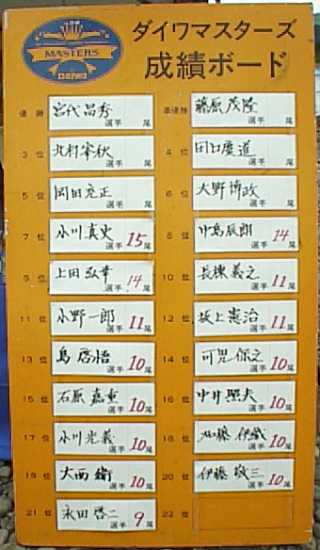 MASTERS
DAIWA
ダイワマスターズ
成績ボード
優勝 宮代昌秀 選手 尾
準優勝 藤原茂隆 選手 尾
3位 北村宰秋 選手 尾
4位 田口慶道 選手 尾
5位 岡田克正 選手 尾
6位 大野博政 選手 尾
7位 小川真史 選手 15尾
8位 中島辰朗 選手 14尾
9位 上田弘幸 選手 14尾
10位 長棟義之 選手 11尾
11位 小野一郎 選手 11尾
12位 坂上憲治 選手 11尾
13位 島啓悟 選手 10尾
14位 可児保之 選手 10尾
15位 石原嘉重 選手 10尾
16位 中井照夫 選手 10尾
17位 小川光義 選手 10尾
18位 加藤伊織 選手 10尾
19位 大西衛 選手 10尾
20位 伊藤敬三 選手 10尾
21位 永田啓二 選手 9尾
22位